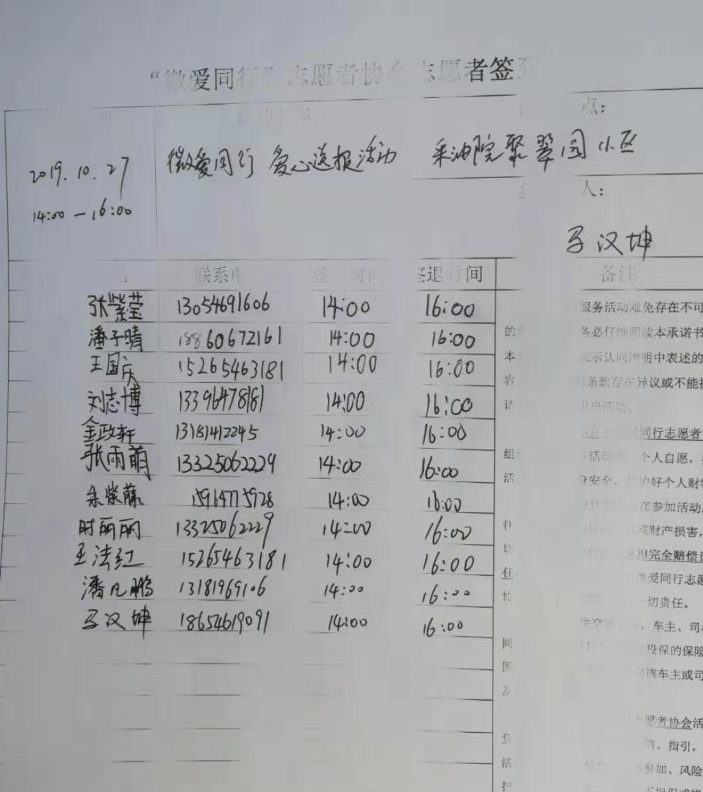 “微爱同行”志愿者协会志愿者签
点：
2019.10.27
14:00—16:00
微爱同行 爱心送报活动
采油院聚翠园小区
人：
马汉坤
联系电 签退时间 备注
张紫莹 13054691606 14:00 16:00
潘子晴 18860672161 14:00 16:00
王国庆 15265463181 14:00 16:00
刘志博 13396478181 14:00 16:00
金政轩 13181412245 14:00 16:00
张雨萌 13325062229 14:00 16:00
紫藤 15914775928 14:00 16:00
时丽丽 13325062229 14:00 16:00
王法红 15265463181 14:00 16:00
潘凡鹏 13181969106 14:00 16:00
马汉坤 18654619091 14:00 16:00
服务活动难免存在不可
务必仔细阅读本承诺书
示认同声明中表述的
条款存在异议或不能
同行志愿者
个人自愿，
身安全，保护好个人财物
在参加活动
财产损害，
担完全赔偿
爱同行志愿
一切责任。
车主、司机
投保的保险
该车主或司
愿者协会活
络、指引，
参加、风险